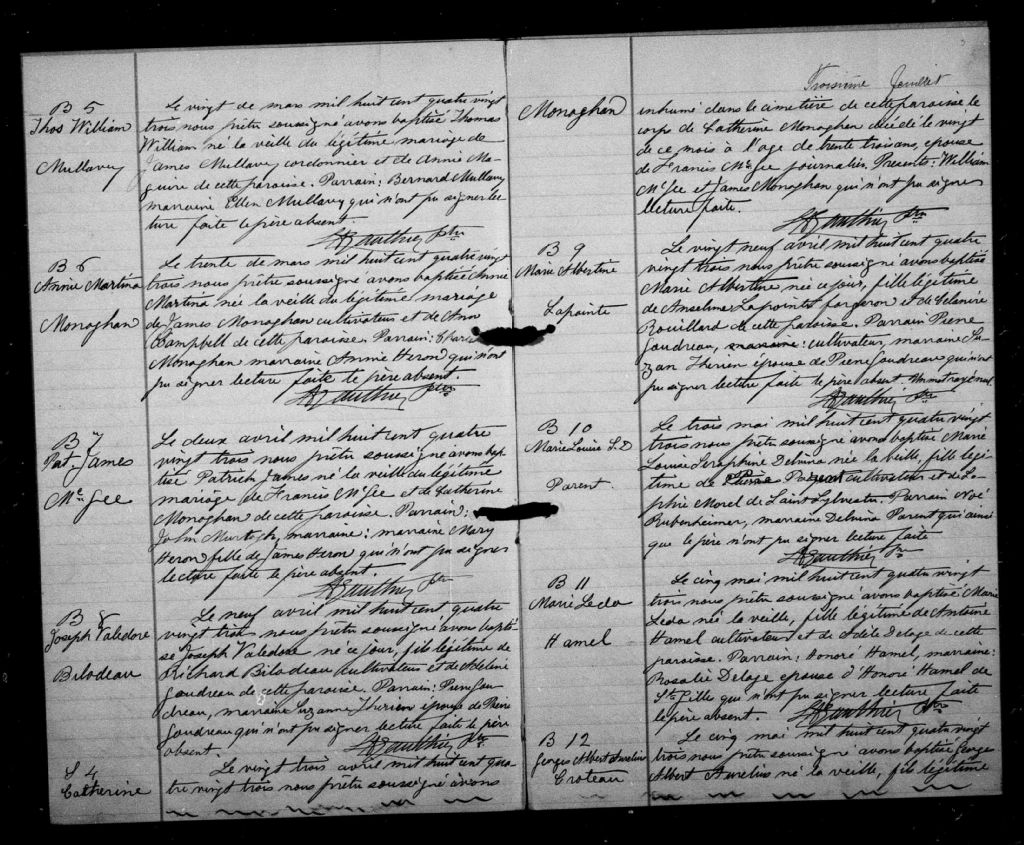 B 5
Thos William
Mullavey
Le vingt de mars mil huit cent quatre vingt
trois nous prêtre soussigné avons baptisé Thomas
William né la veille du légitime mariage de
James Mullavey cordonnier et de Annie Ma-
guire de cette paroisse. Parrain: Bernard Mullavey
marraine Ellen Mullavey qui n'ont pu signer lec
ture faite le père absent.
Gauthier ptre
B 6
Annie Martina
Monaghan
Le trente de mars mil huit cent quatre vingt
trois nous prêtre soussigné avons baptisé Annie
Martina née la veille du légitime mariage
de James Monaghan cultivateur et de Ann
Campbell de cette paroisse. Parrain: Charles
Monaghan marraine Annie Heron qui n'ont
pu signer lecture faite le père absent.
Gauthier ptre
B 7
Pat. James
Mc Gee
Le deux avril mil huit cent quatre
vingt trois nous prêtre soussigné avons bap
tisé Patrick James né la veille du légitime
mariage de Francis McGee et de Catherine
Monaghan de cette paroisse. Parrain:
John Murtagh, marraine: marraine Mary
Heron fille de James Heron qui n'ont pu signer
lecture faite le père absent.
Gauthier ptr
B 8
Joseph Valedore
Bilodeau
Le neuf avril mil huit cent quatre
vingt trois nous prêtre soussigné avons bapti
sé Joseph Valedore né ce jour, fils légitime de
Richard Bilodeau cultivateur et de Adeline
Goudreau de cette paroisse. Parrain: Pierre Gou
dreau, marraine Suzanne Therien épouse de Pierre
Goudreau qui n'ont pu signer lecture faite le père
absent.
Gauthier ptr
S 4
Catherine
Le vingt trois avril mil huit cent qua
tre vingt trois nous prêtre soussigné avons
Troisième feuillet
Monaghan
inhumé dans le cimetière de cette paroisse le
corps de Catherine Monaghan décédé le vingt
de ce mois à l'age de trente trois ans, épouse
de Francis McGee journalier. Presents: William
McGee et James Monaghan qui n'ont pu signer
lecture faite.
Gauthier ptre
B 9
Marie Albertine
Lapointe
Le vingt neuf avril mil huit cent quatre
vingt trois nous prêtre soussigné avons baptisé
Marie Albertine née ce jour, fille légitime
de Anselme Lapointe forgeron et de Zelanire
Rouillard de cette paroisse. Parrain Pierre
Goudreau, marraine: cultivateur, marraine Su
zan Therien épouse de Pierre Goudreau qui n'ont
pu signer lecture faite le père absent. Un mot rayé nul
Gauthier Ptre
B 10
Marie Louise S. D
Parent.
Le trois mai mil huit cent quatre vingt
trois nous prêtre soussigné avons baptisé Marie
Louise Seraphine Delvina née la veille, fille légi
time de Parent cultivateur et de So
phie Morel de Saint Sylvestre. Parrain Noé
marraine Delvina Parent qui ainsi
que le père n'ont pu signer lecture faite
Gauthier Ptr
B 11
Marie Leda
Hamel
Le cinq mai mil huit cent quatre vingt
trois nous prêtre soussigné avons baptisé Marie
Leda née la veille, fille légitime de Antoine
Hamel cultivateur et de Adèle Delage de cette
paroisse. Parrain: Honoré Hamel, marraine:
Rosalie Delage epouse d'Honoré Hamel de
St Gille qui n'ont pu signer lecture faite
le père absent.
Gauthier Ptre
B 12
Georges Albert Aurelius
Croteau
Le cinq mai mil huit cent quatre vingt
trois nous prêtre soussigné avons baptisé Georges
Albert Aurelius né la veille, fils légitime